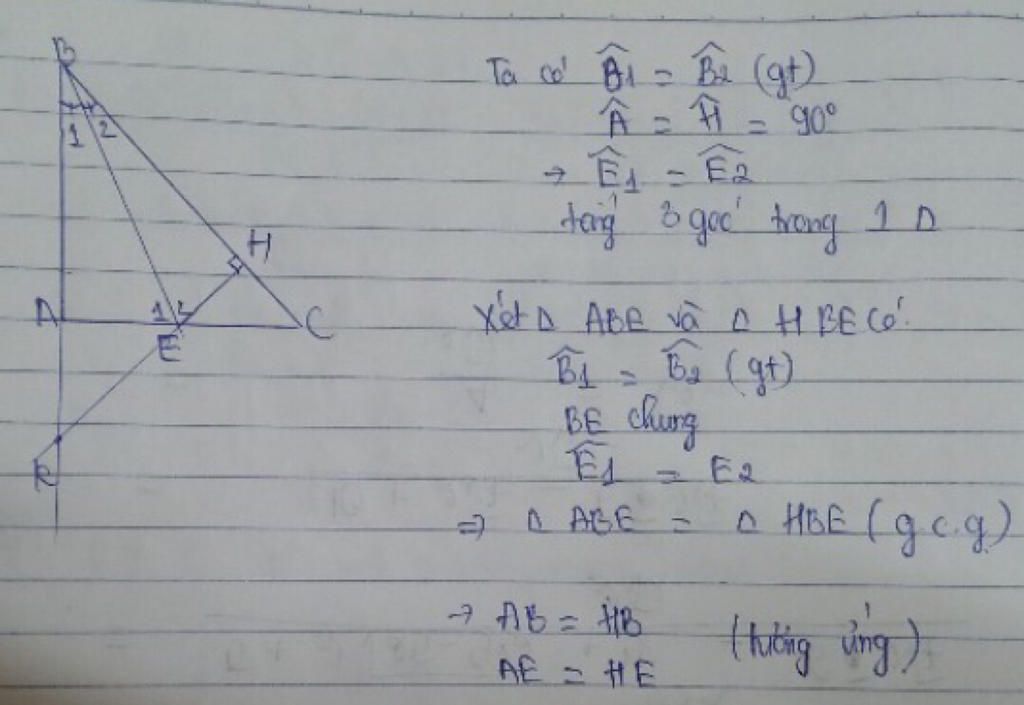 B
1 2
H
A
1 2
C
E
K
Ta có B̂1 = B̂2 (gt)
Â = Ĥ = 90°
→ Ê1 = Ê2
tổng 3 góc trong 1 Δ
Xét Δ ABE và Δ HBE có:
B̂1 = B̂2 (gt)
BE chung
Ê1 = E2
=> Δ ABE = Δ HBE (g.c.g)
→ AB = HB
(tương ứng)
AE = HE